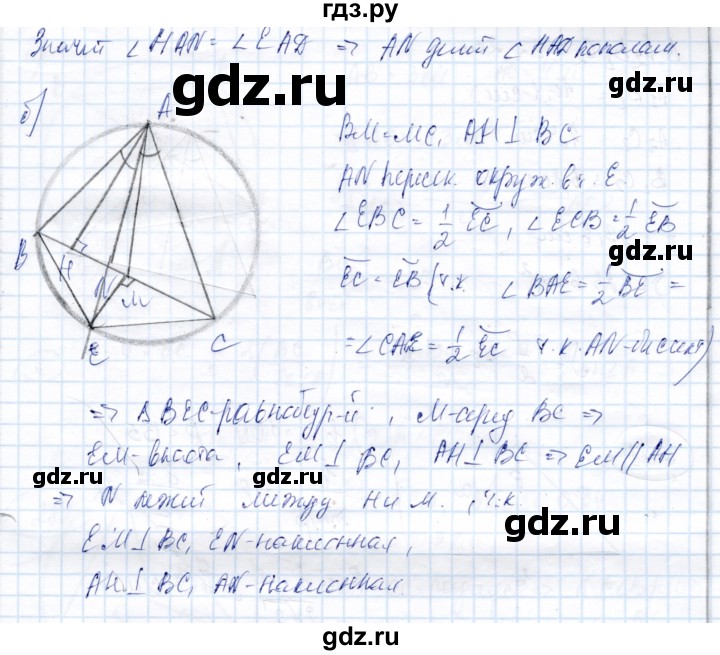 гдз.ру
Значит ∠HAN = ∠EAD ⇒ AN делит ∠HAD пополам.
gdz.ru
gdz.ru
б)
A
B
H
N
M
E
C
BM = MC, AH ⊥ BC
AN перес. окруж. в т. E.
∠EBC = 1/2 EC, ∠ECB = 1/2 EB
EC = EB (т.к. ∠BAE = 1/2 BE =
= ∠CAE = 1/2 EC т.к. AN-биссект)
gdz.ru
gdz.ru
⇒ Δ BEC-равнобедр-й, M-серед BC ⇒
EM-высота, EM ⊥ BC, AH ⊥ BC ⇒ EM || AH
gdz.ru
gdz.ru
⇒ N лежит между H и M, т.к.
EM ⊥ BC, EN-наклонная,
AH ⊥ BC, AN-наклонная.
gdz.ru
gdz.ru
gdz.ru